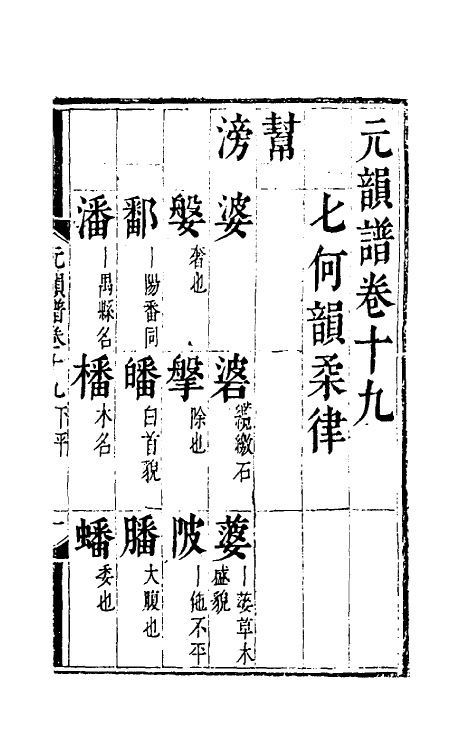 元韻譜卷十九
七何韻柔律
幫
滂 婆 碆 䋣繳石 蔢 一䓝草木盛貌
媻 奢也 搫 除也 陂 一陁不平
鄱 一陽番同 皤 白首貌 膰 大腹也
潘 一禺縣名 橎 木名 蟠 委也
元韻譜卷十九 下平 一